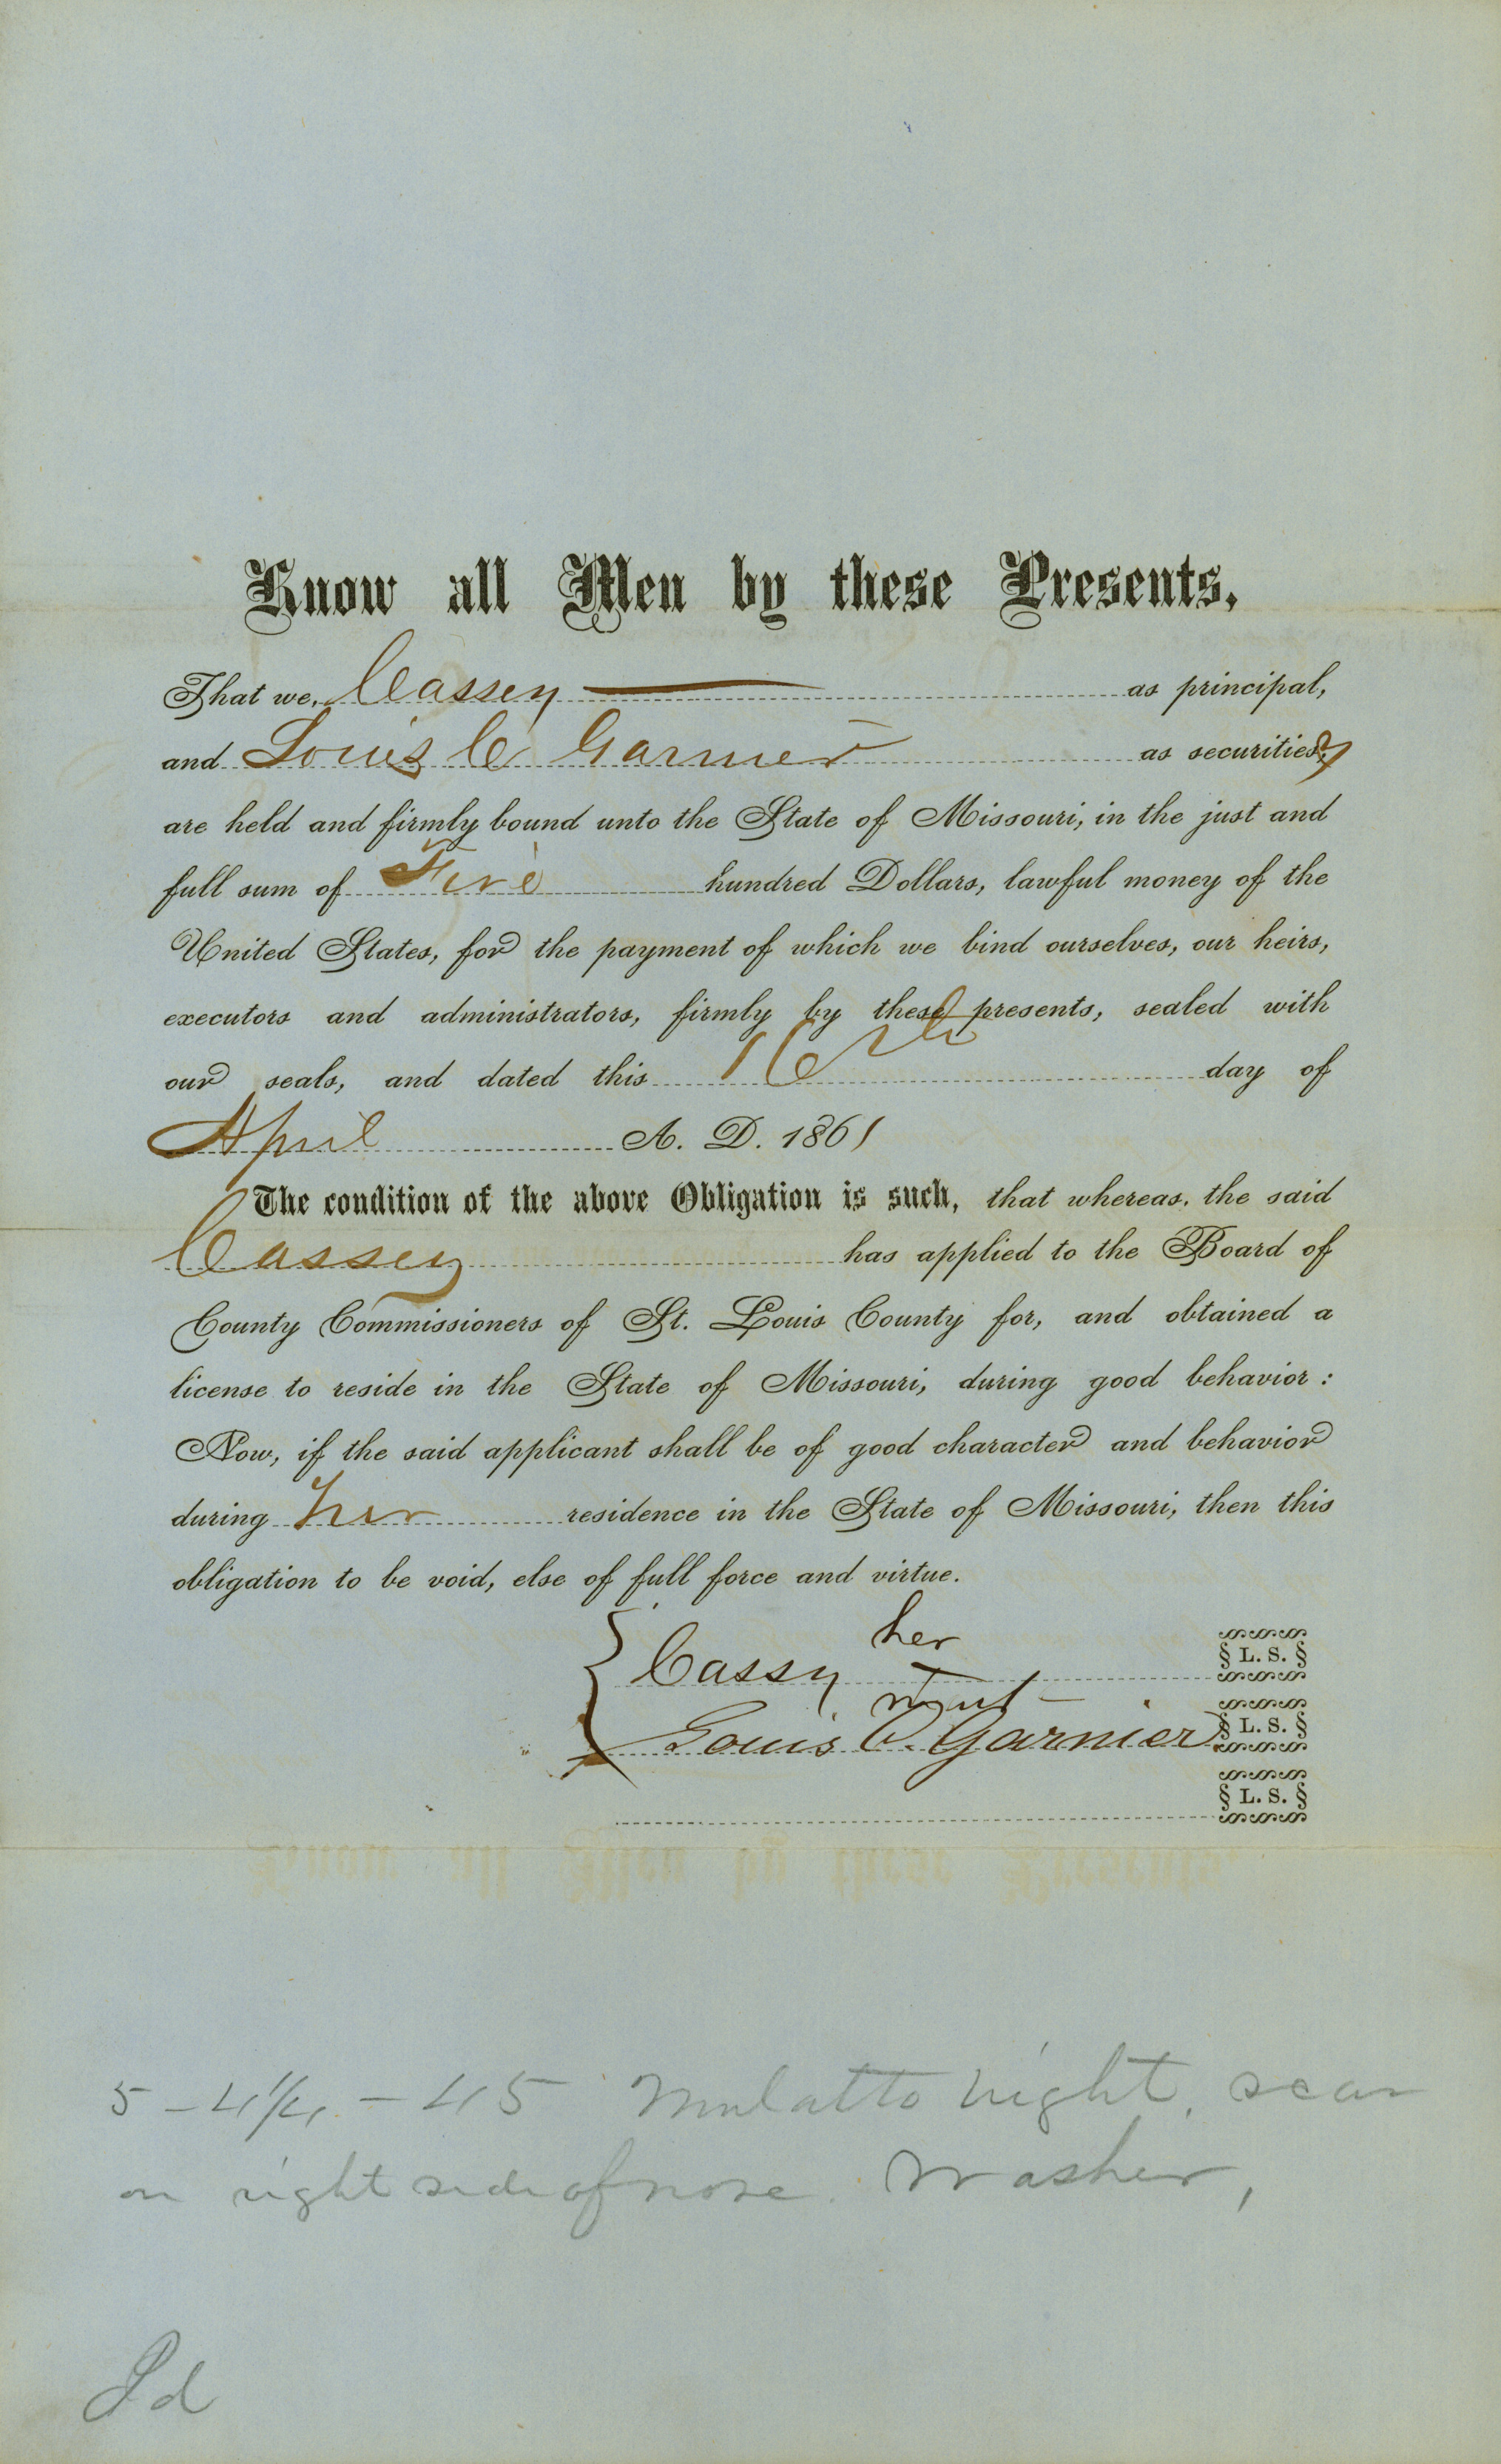 Know all Men by these Presents,
That we, Cassey as principal,
and Louis C Garnier as security,
are held and firmly bound unto the State of Missouri, in the just and
full sum of Five hundred Dollars, lawful money of the
United States, for the payment of which we bind ourselves, our heirs,
executors and administrators, firmly by these presents, sealed with
our seals, and dated this 16th day of
April A. D. 1861
The condition of the above Obligation is such, that whereas, the said
Cassey has applied to the Board of
County Commissioners of St. Louis County for, and obtained a
license to reside in the State of Missouri, during good behavior :
Now, if the said applicant shall be of good character and behavior
during her residence in the State of Missouri, then this
obligation to be void, else of full force and virtue.
her
Cassy L. S.
Louis C. Garnier L. S.
L. S.
5 - 4 1/4 - 45 Mulatto bright, scar
on right side of nose. Washer,